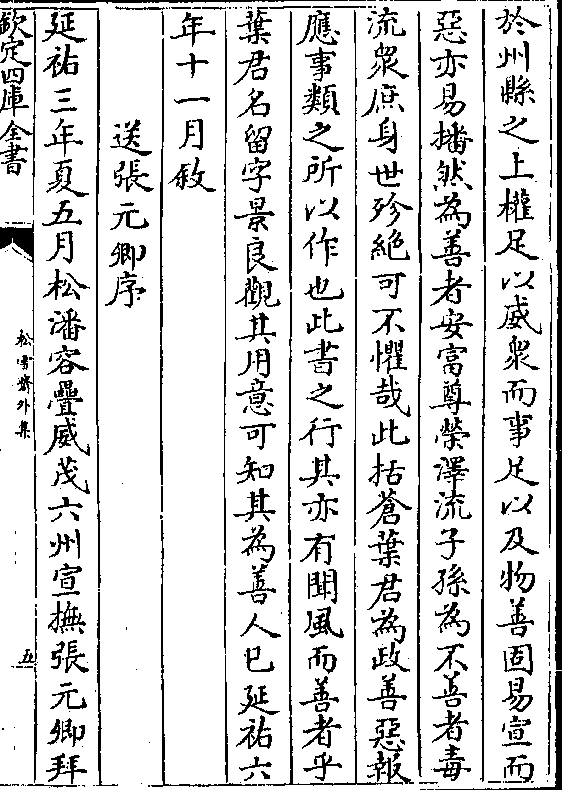 於州縣之上權足以威衆而事足以及物善固易宣而
惡亦易播然為善者安富尊榮澤流子孫為不善者毒
流衆庶身世殄絶可不懼哉此括蒼葉君為政善惡報
應事類之所以作也此書之行其亦有聞風而善者乎
葉君名留字景良觀其用意可知其為善人已延祐六
年十一月敘
送張元卿序
延祐三年夏五月松潘容疊威茂六州宣撫張元卿拜
欽定四庫全書
松雪齋外集
五